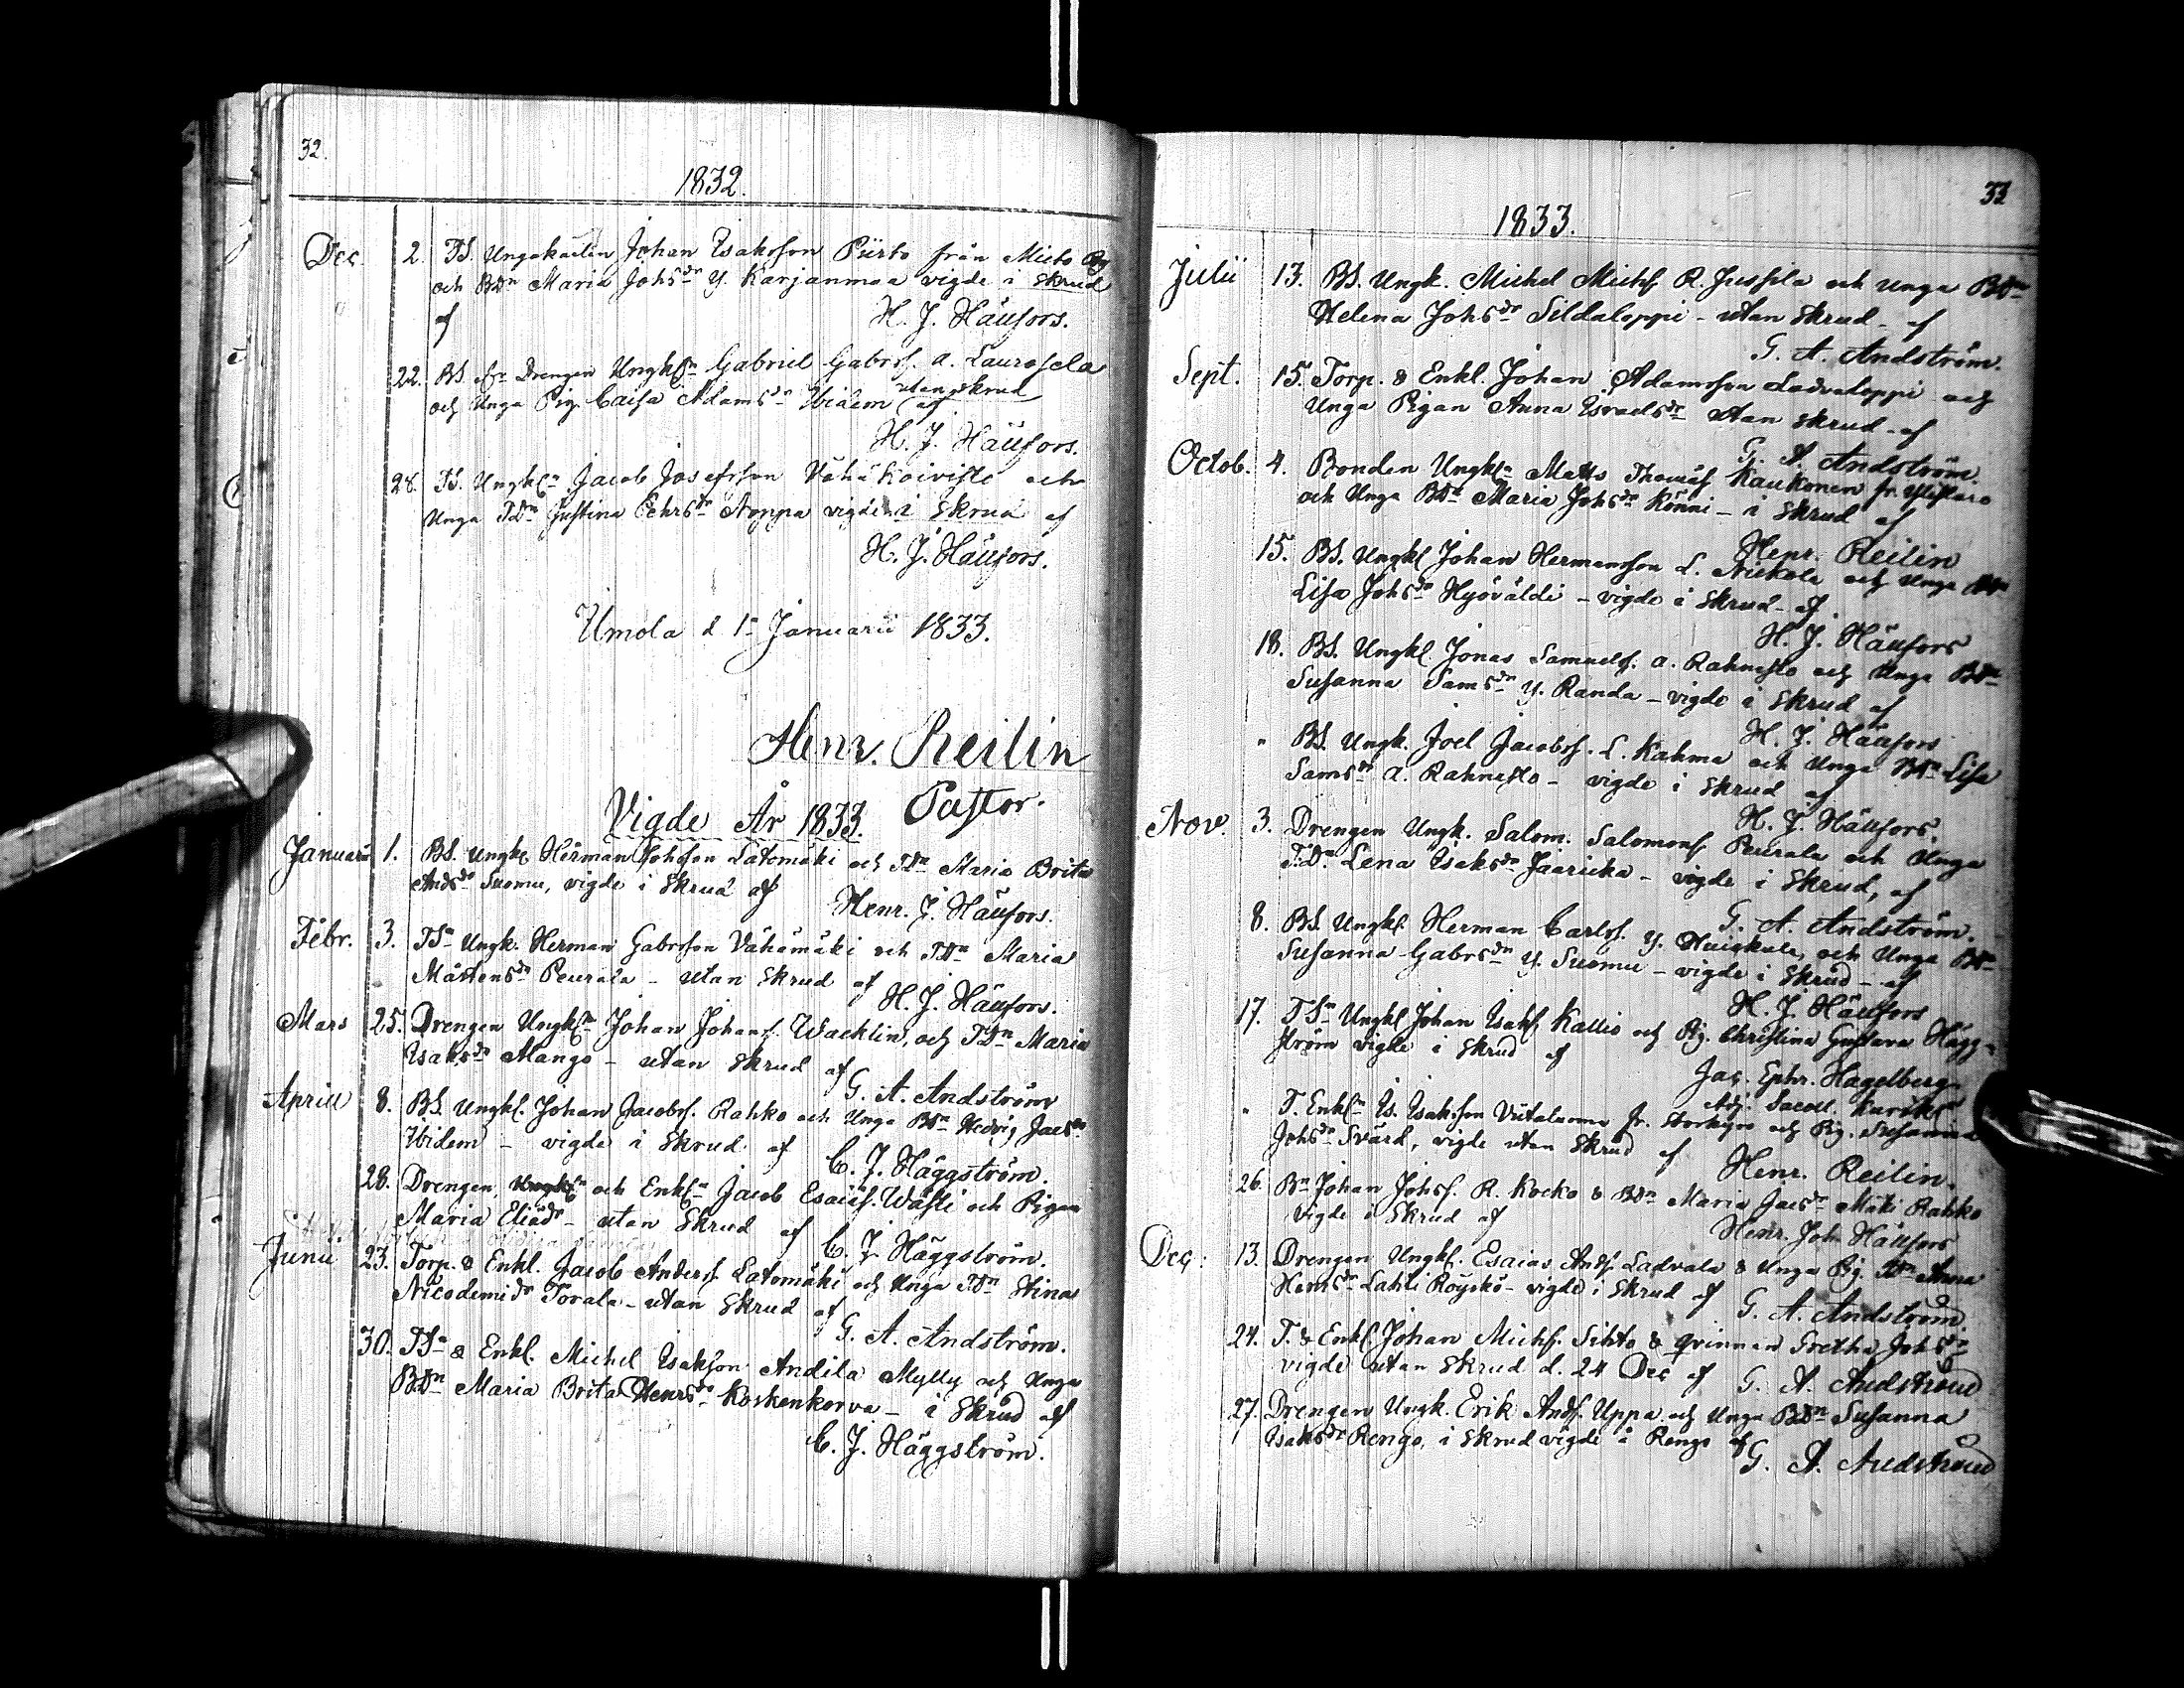 32.
1832.
Dec. 2. TS. Ungekarlen Johan Isaksson Piirto från Mieto By
och BDn Maria Johsdr Y. Karjanmaa vigde i Skrud
af H. J. Häufors.
22. BS. Drengen Ungkln Gabriel Gabrsf. a. Laurosela
och Unga Pig. Caisa Adamsdr Ibidem utan skrud af
H. J. Häufors.
28. TS. Ungkln Jacob Josefsson Vähä Koivisto och
Unga TDn Justina vigde i Skrud af
H. J. Häufors.
Ilmola d. 1n Januarii 1833.
Henr. Reilin
Pastor.
Vigde År 1833.
Januarii 1. BS. Ungkl Herman Johsson Latomäki och TDn Maria Brita
Andsdr Suomu, vigde i Skrud af
Henr. J. Häufors.
Febr. 3. TSn Ungk. Herman Gabrsson Vähämäki och TDn Maria
Mårtensdr Peurala - utan Skrud af
H. J. Häufors.
Mars 25. Drengen Ungkln Johan Johansf. Wacklin, och TDn Maria
Isaksdr Mango - utan Skrud af
G. A. Andström
Aprill 8. BS. Ungkl. Johan Jacobsf. Rahko och Unga BDn Hedvig Jacsdr
Ibidem - vigde i Skrud af
C. J. Häggström.
28. Drengen, och Enkln Jacob Esaiæsf. Wästi och Pigan
Maria Eliædr - utan Skrud af
C. J. Häggström.
Junii 23. Torp. & Enkl. Jacob Andersf. Latomäki och Unga TDn Stina
Nicodemidr Torala - utan Skrud af
G. A. Andström.
30. TSn & Enkl. Michel Isaksson Andila Mylly och Unga
BDn Maria Brita Henrsdr Koskenkorva - i Skrud af
C. J. Häggström.
33
1833.
Julii 13. BS. Ungk. Michel Michsf. R. Jussila och unga BDn
Helena Johsdr Sildaloppi - utan Skrud - af
G. A. Andström.
Sept. 15. Torp. & Enkl. Johan Adamsson Ladvaloppi och
Unga Pigan Anna Israelsdr utan skrud - af
G. A. Andström.
Octob. 4. Bonden Ungkln Matts Thomæsf. Kaukonen fr. Ylistaro
och Unga BDn Maria Johsdr Könni - i Skrud af
Henr. Reilin
15. BS. Ungkl Johan Hermansson L. Nickola och Unga BDn
Lisa Johsdr Hyövälde - vigde i Skrud - af
H. J. Häufors
18. BS. Ungkl. Jonas Samuelsf. a. Rahnasto och Unga BDn
Susanna Samsdr Y. Randa - vigde i Skrud af
H. J. Häufors
" BS. Ungk. Joel Jacobsf. L. Kahma och Unga BDn Lisa
Samsdr a. Rahnasto - vigde i Skrud af
H. J. Häufors.
Nov. 3. Drengen Ungk. Salom. Salomonsf. Peurala och Unga
T.Dn. Lena Isaksdr Jaaricka - vigde i Skrud, af
G. A. Andström.
8. BS. Ungkl. Herman Carlsf. Y. Huiskula, och Unga BDn
Susanna Gabrsdr Y. Suomu - vigde i Skrud - af
H. J. Häufors
17. TSn Ungkl Johan Isaksf. Kallio och Pig. Christina Gustava Hägg-
ström vigde i Skrud af
Jac. Ephr. Hagelberg
Adj. Sacell.
" T. Enkln Is. Isaksson Viitalaoma fr. Storkyro och Pig. Susanna
Johsdr Svärd, vigde utan Skrud af
Henr. Reilin.
26. Bn Johan Johsf. R. Kocko & BDn Maria Jacsdr Mäki Rahko
vigde i Skrud af
Henr. Joh. Häufors
Dec. 13. Drengen Ungkl. Esaias Andsf. Ladvala & Unga Pig. TDn Anna
Hermsdr Lahti Röyskö - vigde i Skrud af
G. A. Andström
24. T. & Enkl. Johan Michsf. Sihto & qvinnan Gretha Johsdr
vigde utan Skrud d. 24 Dec af
G. A. Andström
27. Drengen Ungk. Erik Andsf. Uppa och Unga BDn Susanna
Isaksdr Rengo, i Skrud vigde i Rengo af
G. A. Andström